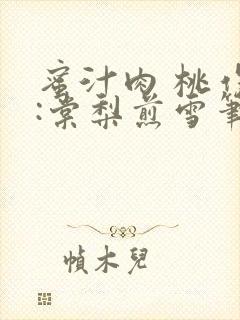 蜜汁肉桃作
:棠梨煎雪筆
幀木兒